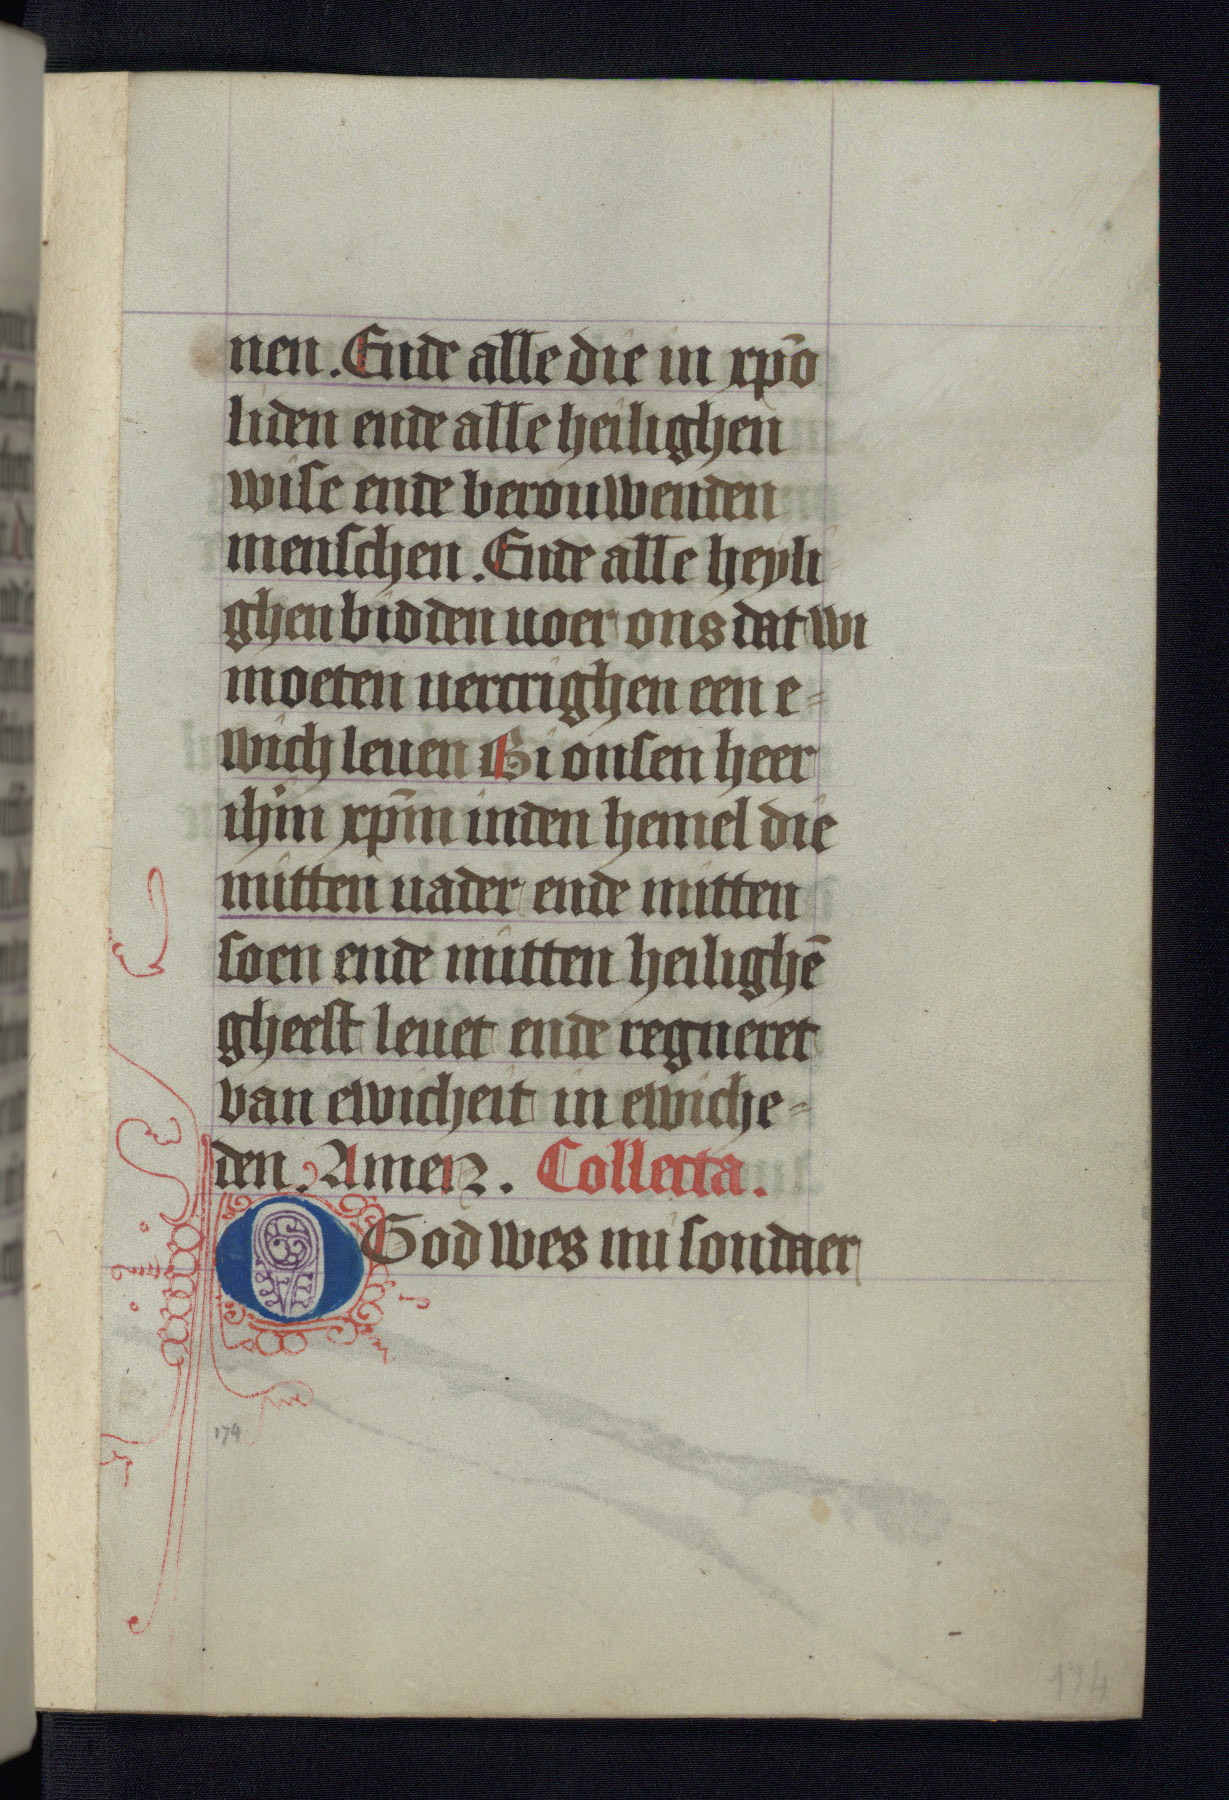 nen. Ende alle die in xp̄o
liden ende alle heilighen
wise ende berouwenden
menschen. Ende alle heyli
ghen bidden uoer ons dat wi
moeten uercrighen een e=
wich leuen Bi onsen heer
ihm̄ xp̄m inden hemel die
mitten uader ende mitten
soen ende mitten heilighē
gheest leuet ende regneret
van ewicheit in ewiche=
den. Amen. Collecta.
O God wes mi sondaer
174
174